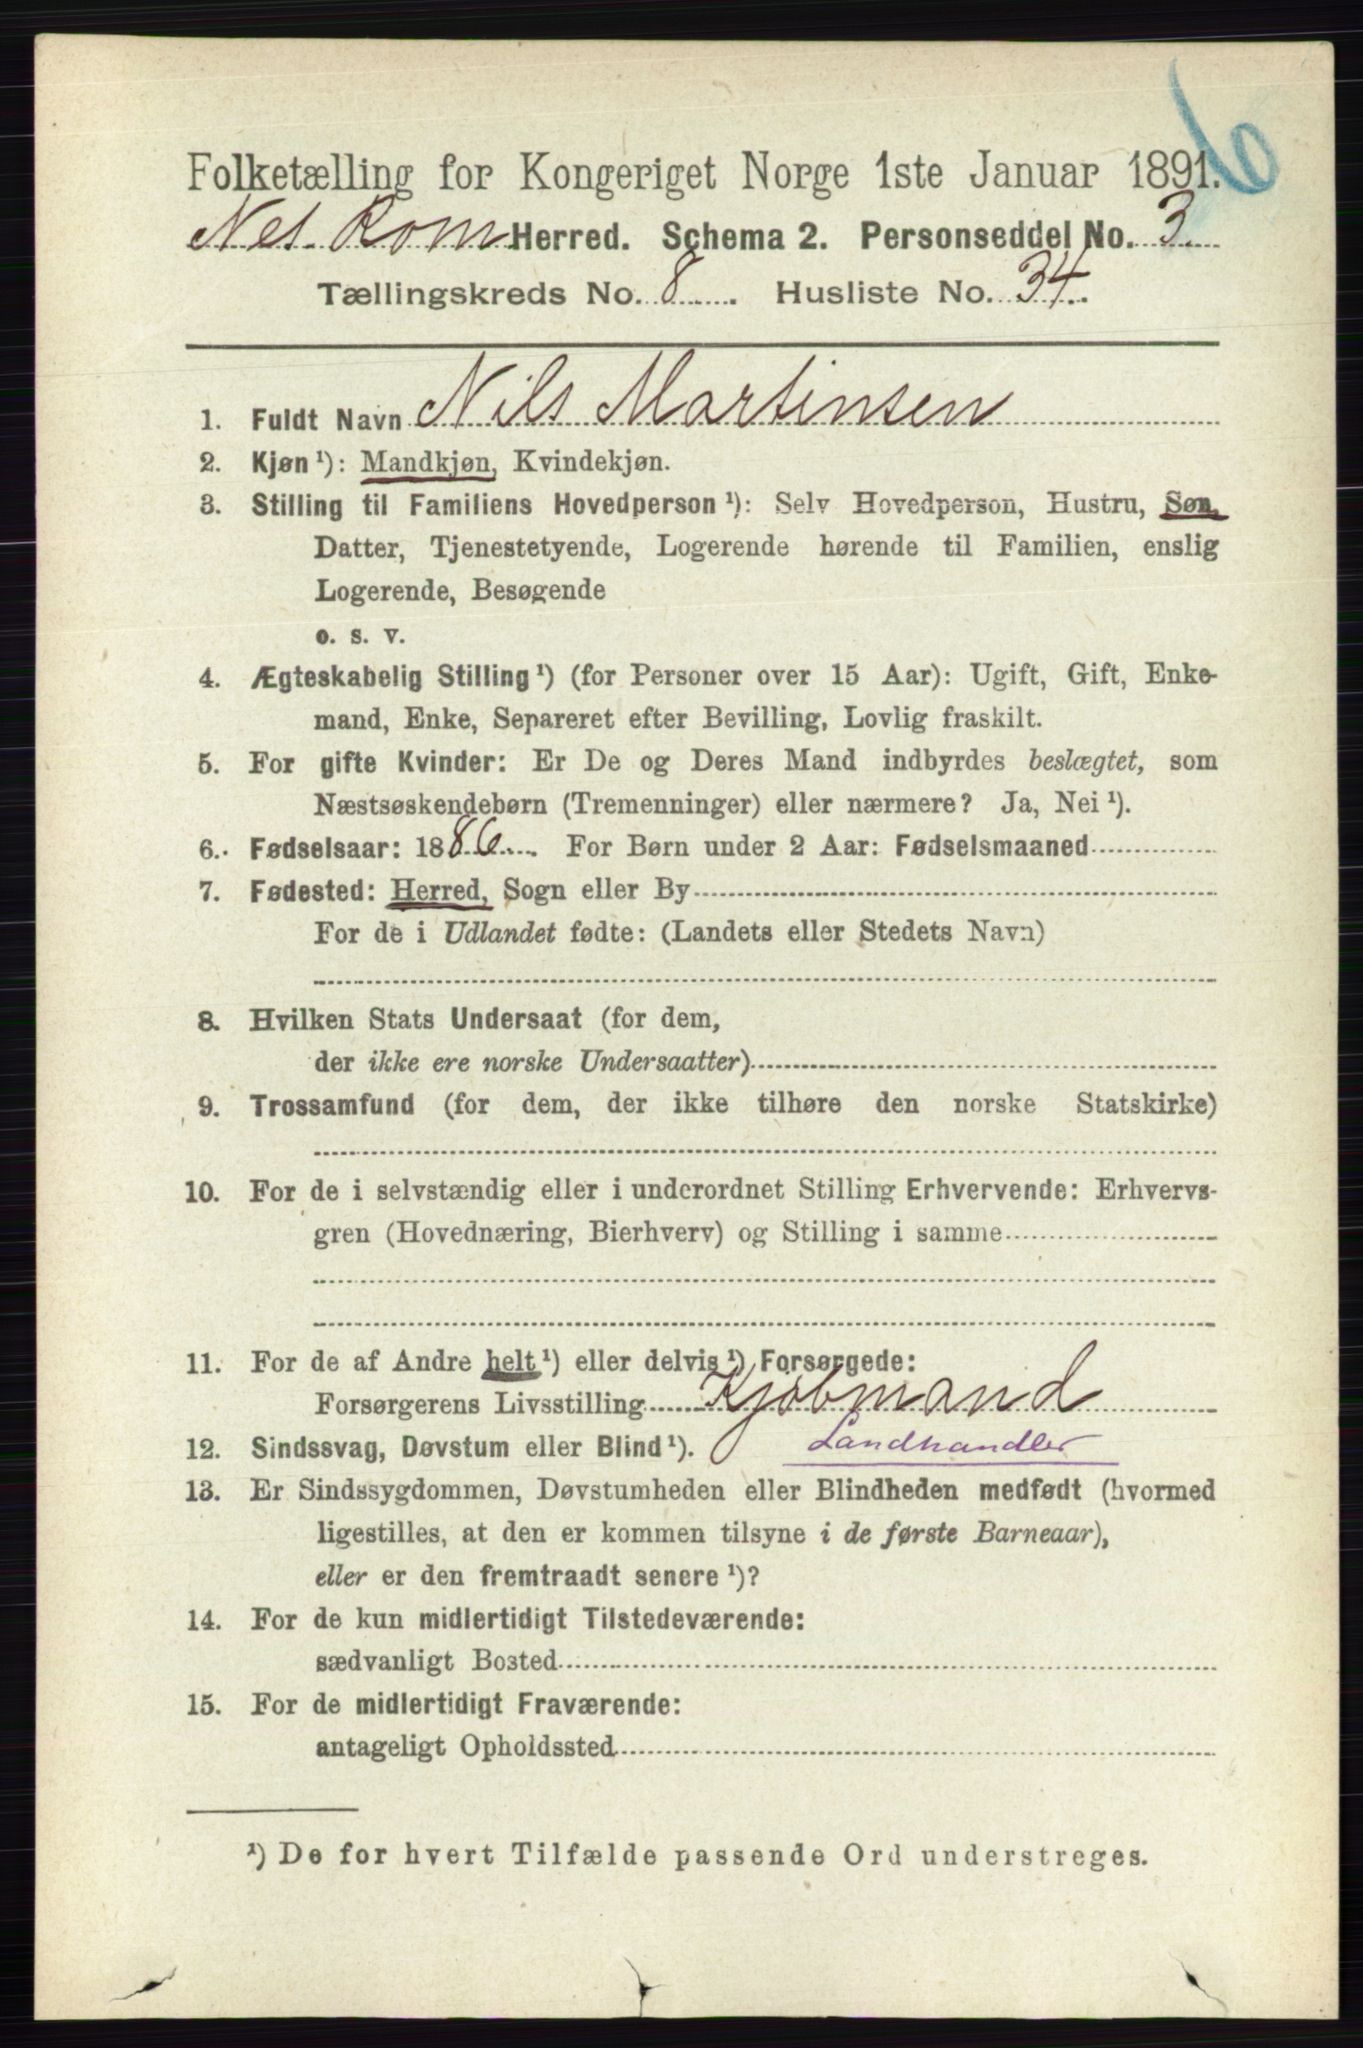 6
Folketælling for Kongeriget Norge 1ste Januar 1891.
Nes Rom Herred. Schema 2. Personseddel No. 3.
Tællingskreds No. 8. Husliste No. 34.
1. Fuldt Navn Nils Martinsen
2. Kjøn ¹): Mandkjøn, Kvindekjøn.
3. Stilling til Familiens Hovedperson ¹): Selv Hovedperson, Hustru, Søn,
Datter, Tjenestetyende, Logerende hørende til Familien, enslig
Logerende, Besøgende
o. s. v.
4. Ægteskabelig Stilling ¹) (for Personer over 15 Aar): Ugift, Gift, Enke-
mand, Enke, Separeret efter Bevilling, Lovlig fraskilt.
5. For gifte Kvinder: Er De og Deres Mand indbyrdes beslægtet, som
Næstsøskendebørn (Tremenninger) eller nærmere? Ja, Nei ¹).
6. Fødselsaar: 1886. For Børn under 2 Aar: Fødselsmaaned
7. Fødested: Herred, Sogn eller By
For de i Udlandet fødte: (Landets eller Stedets Navn)
8. Hvilken Stats Undersaat (for dem,
der ikke ere norske Undersaatter)
9. Trossamfund (for dem, der ikke tilhøre den norske Statskirke)
10. For de i selvstændig eller i underordnet Stilling Erhvervende: Erhvervs-
gren (Hovednæring, Bierhverv) og Stilling i samme
11. For de af Andre helt ¹) eller delvis ¹) Forsørgede:
Forsørgerens Livsstilling Kjøbmand
12. Sindssvag, Døvstum eller Blind ¹). Landhandler
13. Er Sindssygdommen, Døvstumheden eller Blindheden medfødt (hvormed
ligestilles, at den er kommen tilsyne i de første Barneaar),
eller er den fremtraadt senere ¹)?
14. For de kun midlertidigt Tilstedeværende:
sædvanligt Bosted
15. For de midlertidigt Fraværende:
antageligt Opholdssted
¹) De for hvert Tilfælde passende Ord understreges.